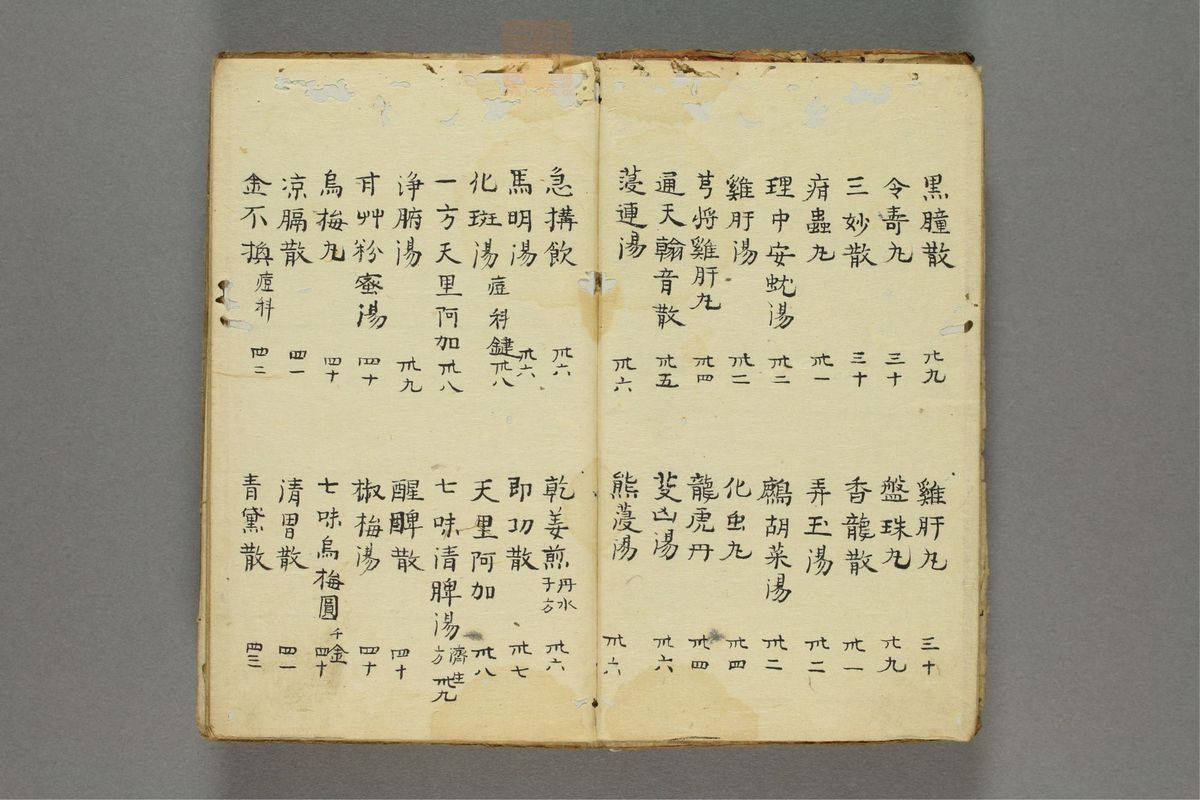 黒瞳散 廿九
令壽丸 三十
三妙散 三十
疳蟲丸 卅一
理中安蛇湯 卅二
雞肝湯 卅二
芎將雞肝丸 卅四
通天翰音散 卅五
蔆連湯 卅六
雞肝丸 三十
盤珠丸 廿九
香龍散 卅一
弄玉湯 卅二
鷓胡菜湯 卅二
化虫丸 卅四
龍虎丹 卅四
凶湯 卅六
熊蔆湯 卅六
急搆飲 卅六
馬明湯 卅六
化斑湯 痘科鍵 卅八
一方天里阿加 卅八
浄腑湯 卅九
甘艸粉蜜湯 四十
烏梅丸 四十
凉膈散 四一
金不換 痘科 四二
乾姜煎 丹水子方 卅六
即功散 卅七
天里阿加 卅八
七味清脾湯 濟生方 卅九
醒脾散 四十
椒梅湯 四十
七味烏梅圓 千金 四十
清胃散 四一
青黛散 四三